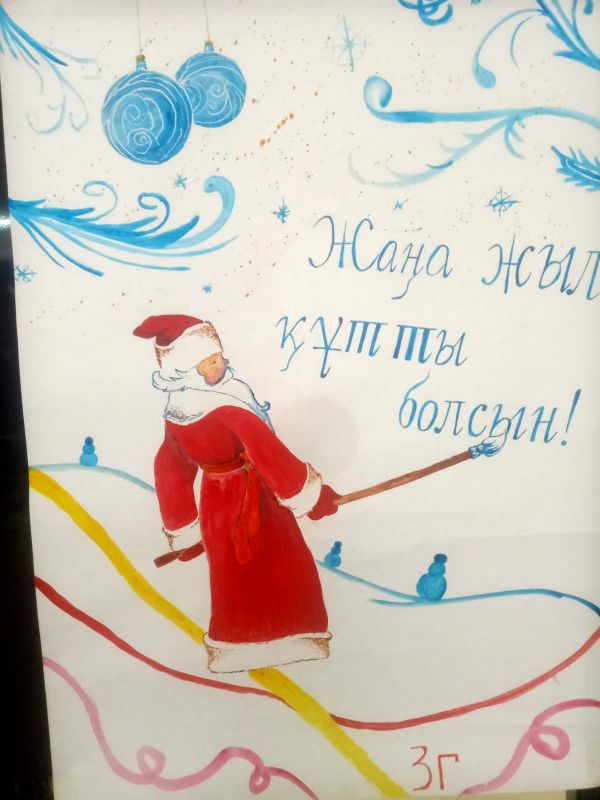 Жаңа жыл
құтты
болсын!
3г